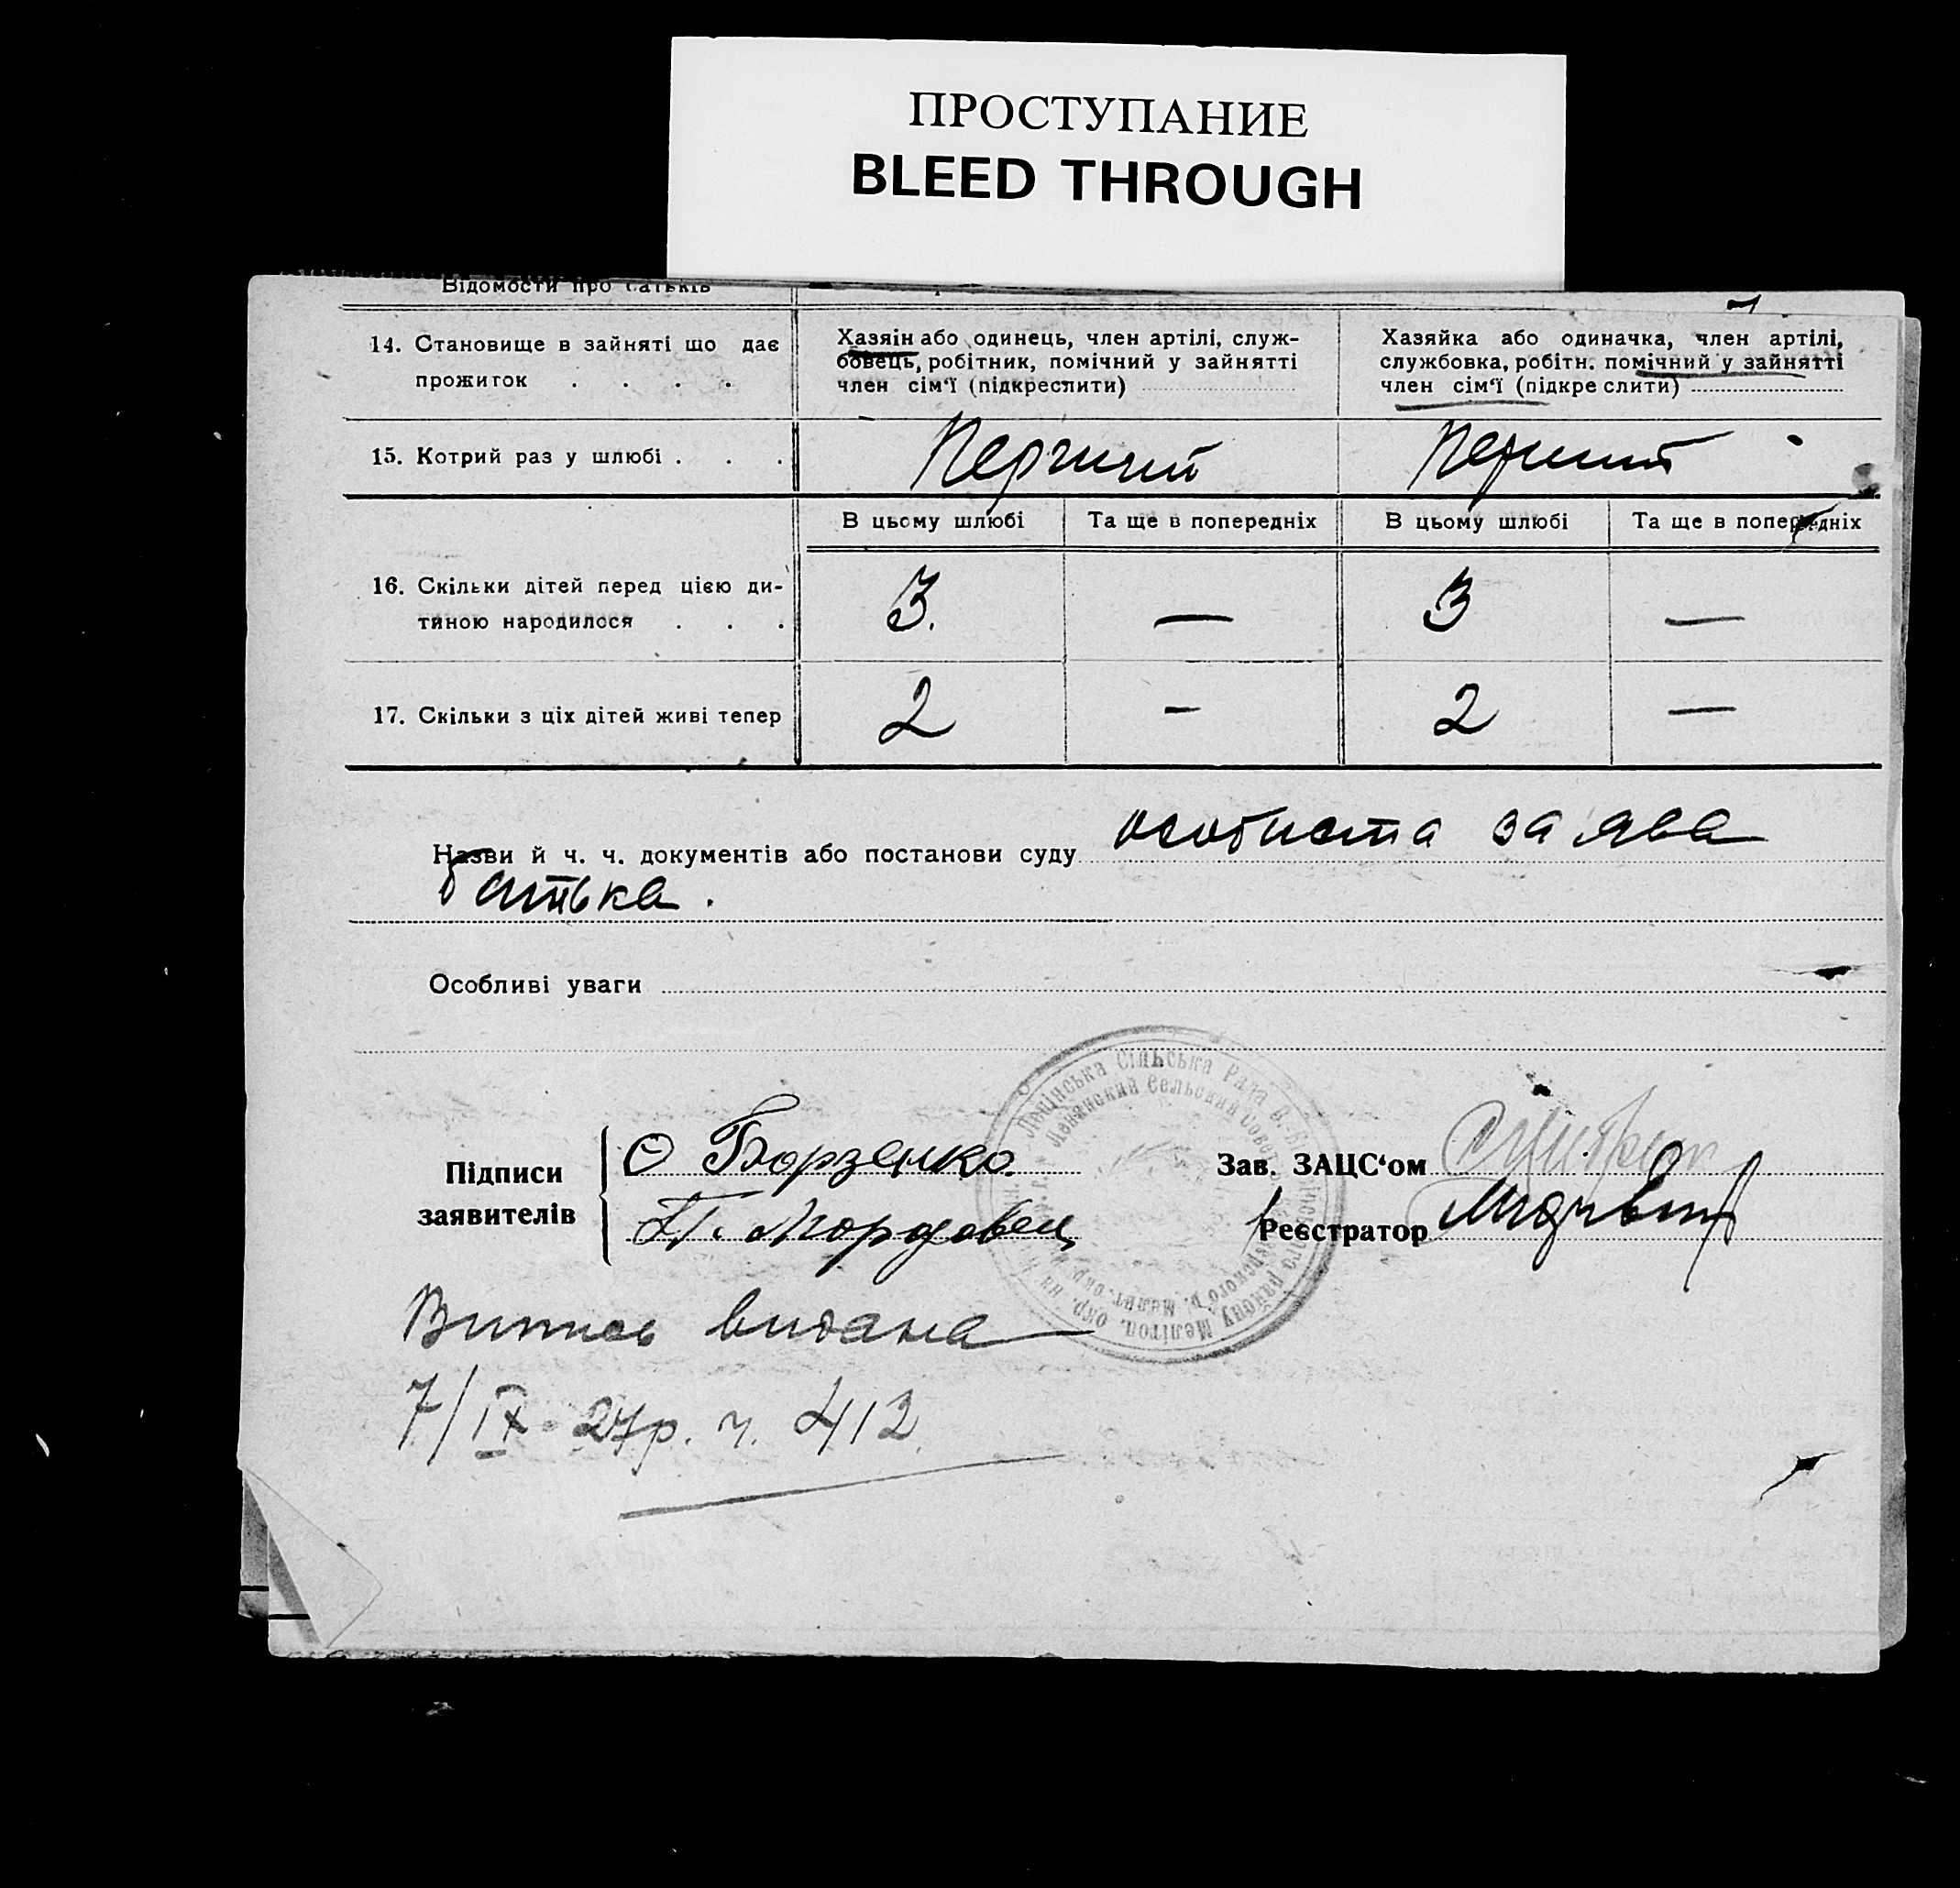 ПРОСТУПАНИЕ
BLEED THROUGH
Відомости про батьків
14. Становище в зайняті що дає прожиток . . . .
Хазяін або одинець, член артілі, служ-
бовець, робітник, помічний у зайнятті
член сім‘ї (підкреслити)
Хазяйка або одиначка, член артілі,
службовка, робітн. помічний у зайнятті
член сім‘ї (підкреслити)
15. Котрий раз у шлюбі . . . Перший Перший
В цьому шлюбі Та ще в попередніх В цьому шлюбі Та ще в попередніх
16. Скільки дітей перед цією ди-
тиною народилося . . . 3. — 3 —
17. Скільки з ціх дітей живі тепер 2 - 2 —
Назви й ч. ч. документів або постанови суду особиста заява
батька.
Особливі уваги
Ленінська Сільська Рада
Ленинский Сельский Совет
Підписи
заявителів
О Борзенко
П. Мордовец
Зав. ЗАЦС‘ом
Реєстратор
Витись видана
7/IX 27р. ч. 412.